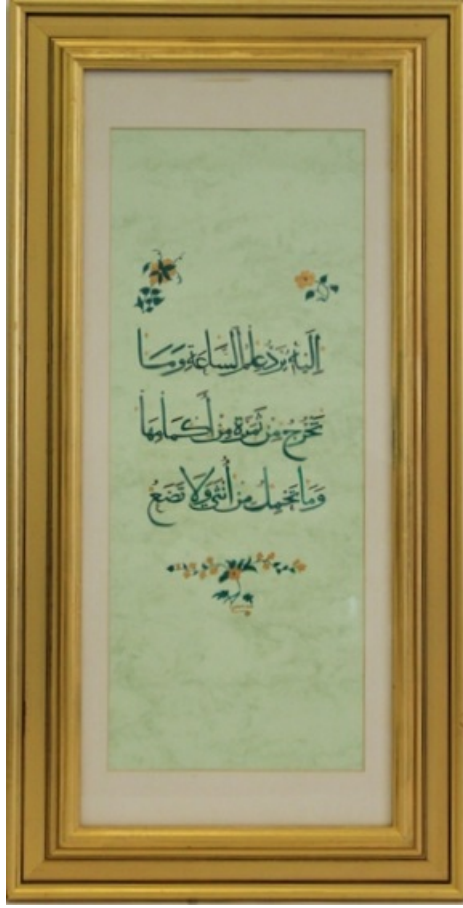 إِلَيْهِ يُرَدُّ عِلْمُ السَّاعَةِ وَمَا
تَخْرُجُ مِن ثَمَرَةٍ مِنْ أَكْمَامِهَا
وَمَا تَحْمِلُ مِنْ أُنْثَى وَلَا تَضَعُ